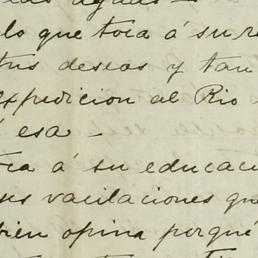 las aguas —
lo que toca á su
tus deseos y tan
expedicion al Rio
esa —
á su educac
vacilaciones qu
bien opina porqué